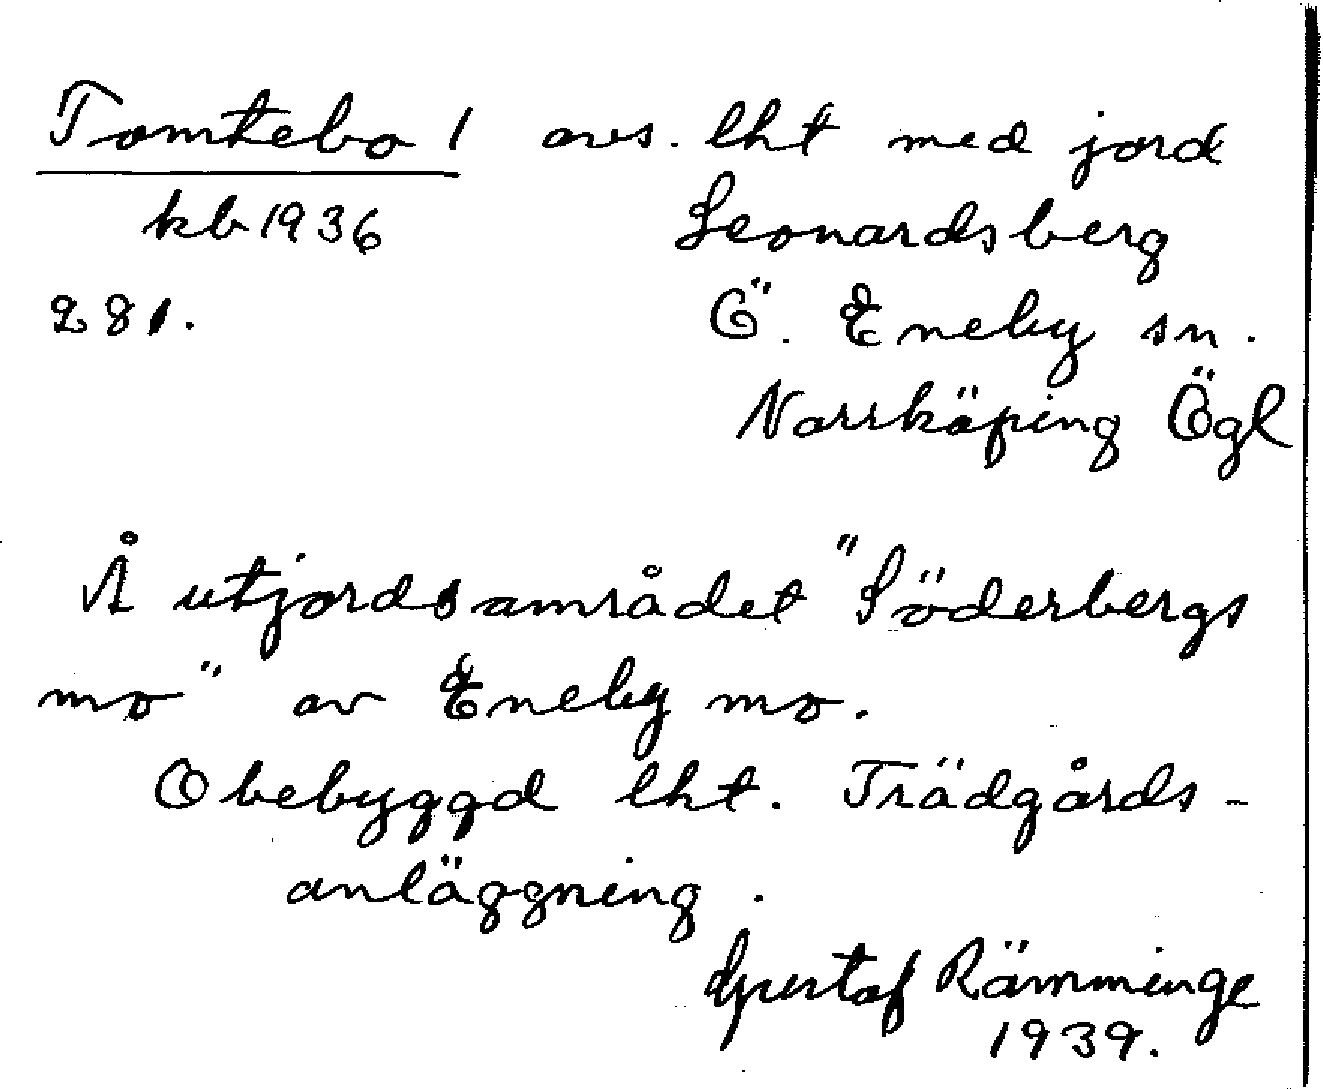 Tomtebo 1 avs. lht med jord
kb 1936 Leonardsberg
281. Ö. Eneby sn.
Norrköping Ögl
Å utjordsområdet "Söderbergs
mo" av Eneby mo.
Obebyggd lht. Trädgårds-
anläggning.
Gustaf Rämminge
1939.